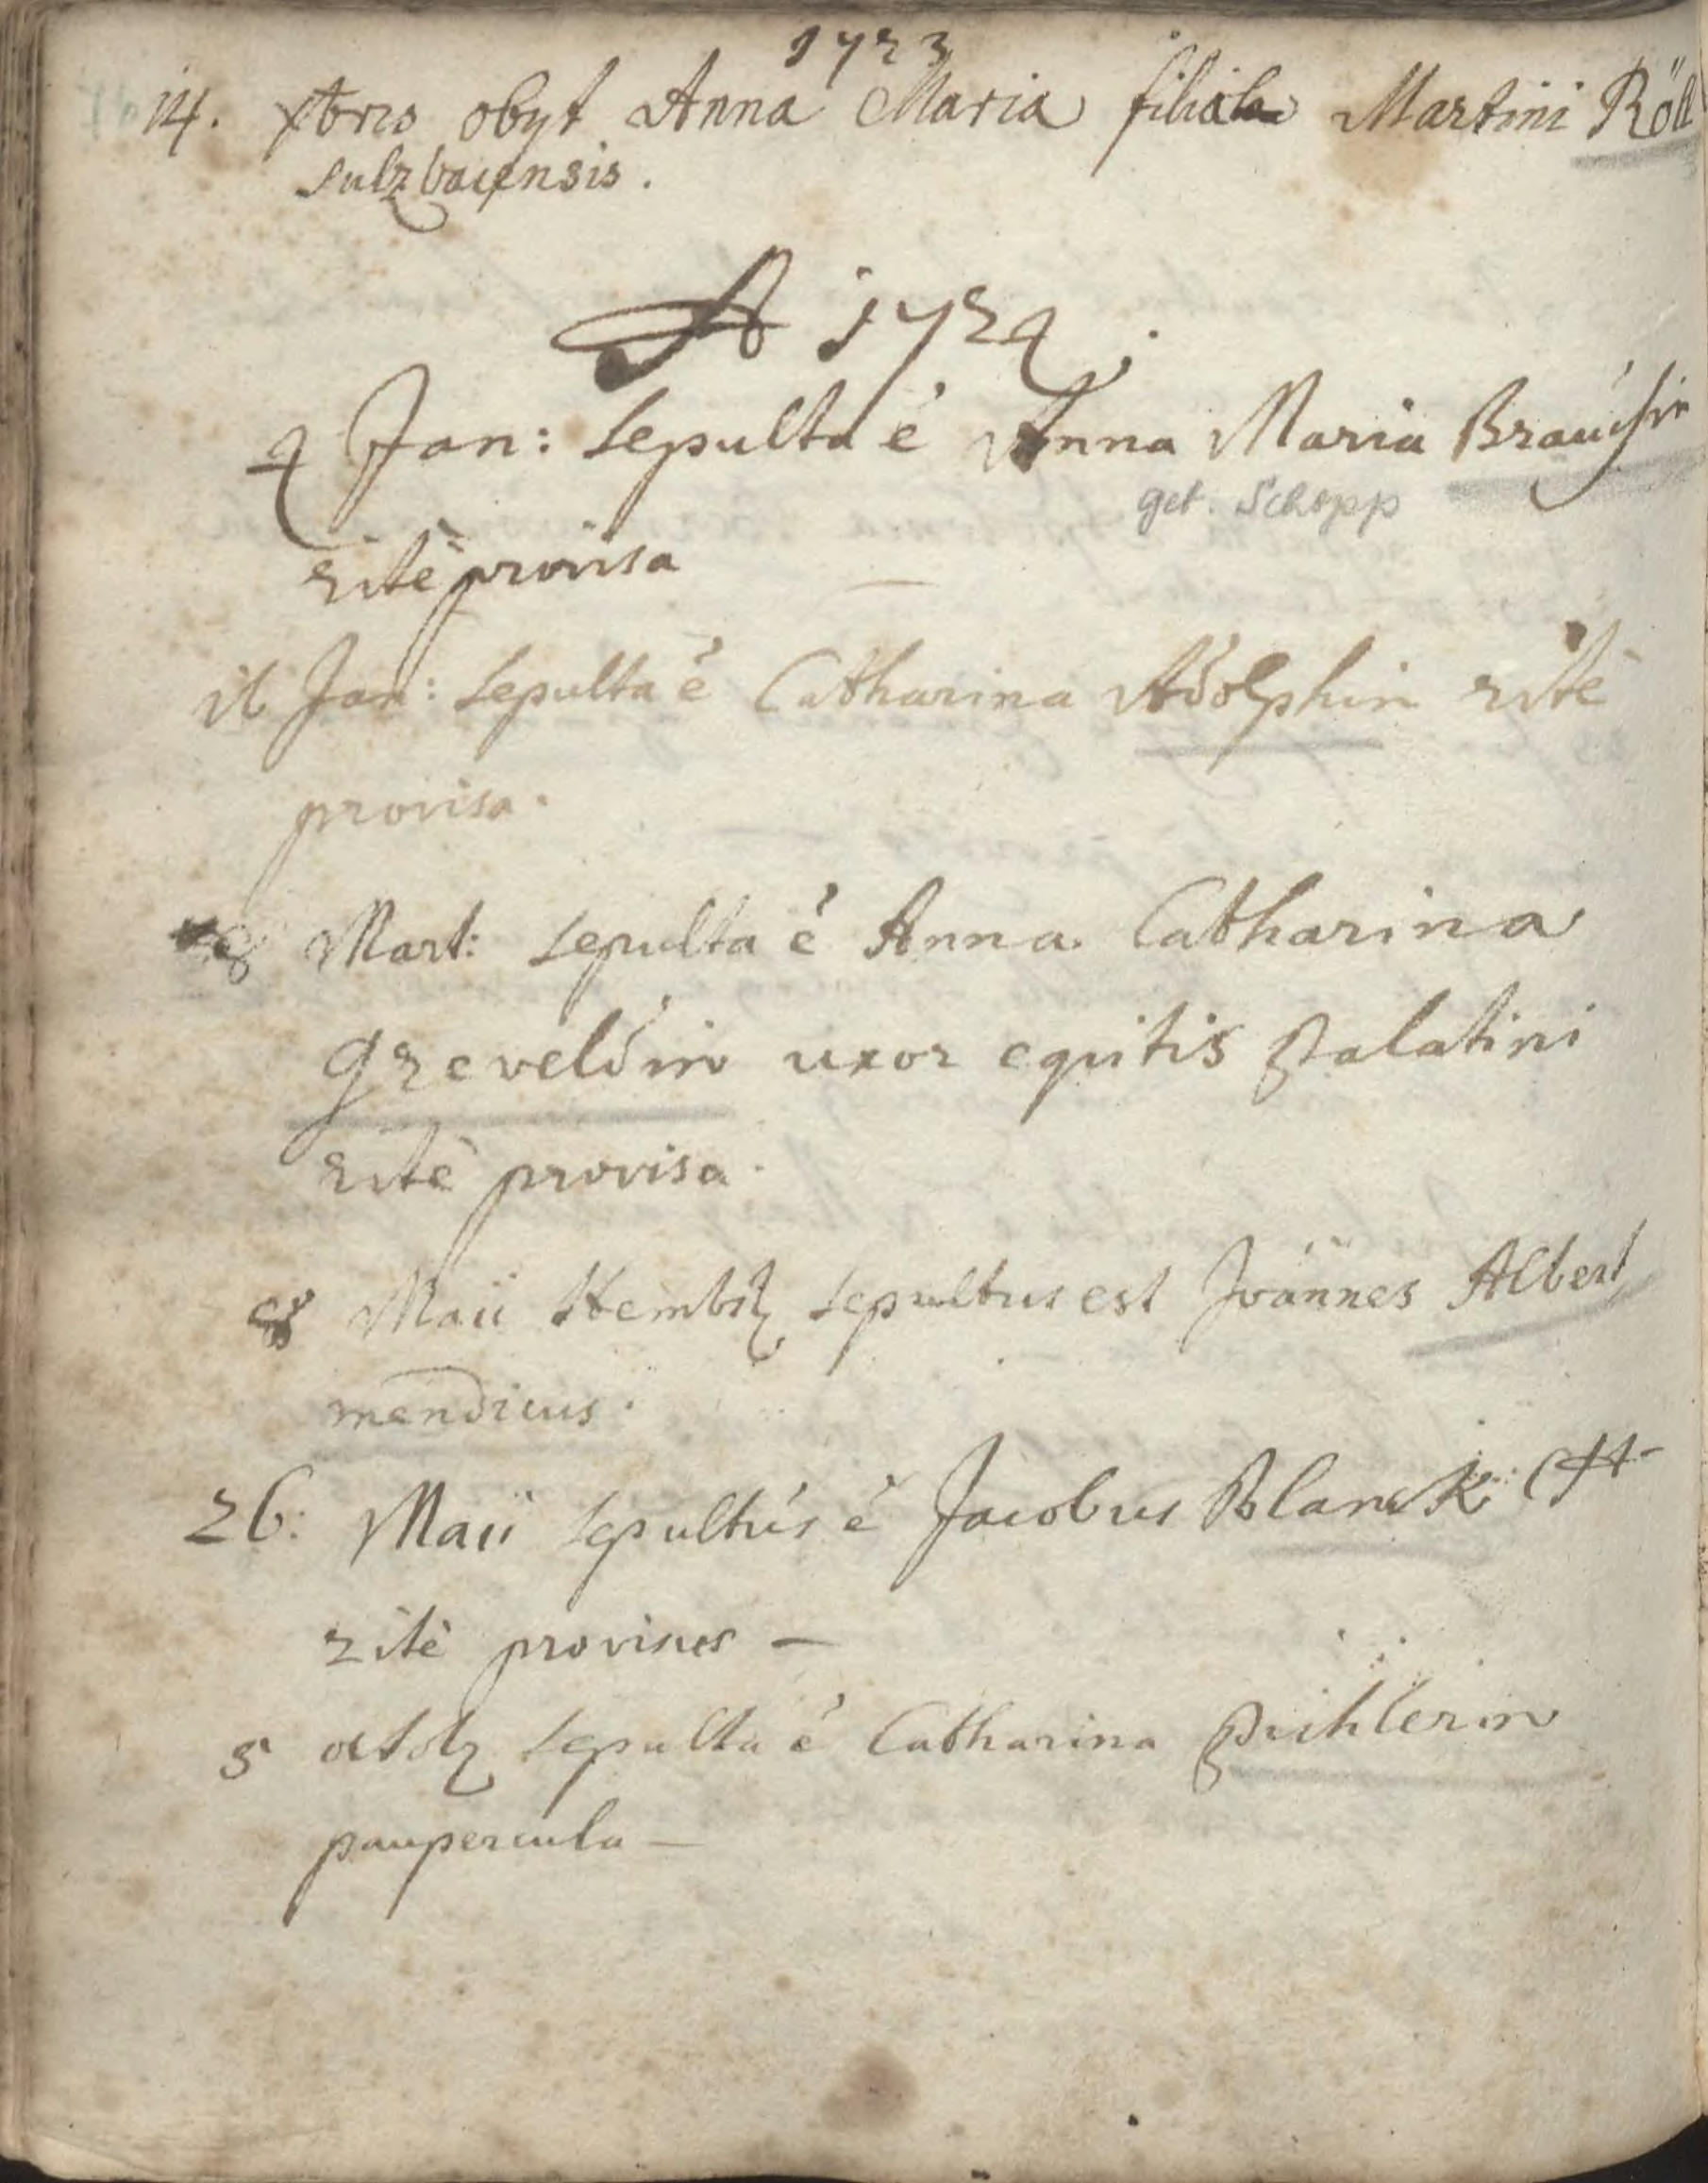 1723
14. xbris obyt Anna Maria filiola Martini Röll
Sulzbacensis.
A 1724.
4 Jan: sepulta ė Anna Maria Brauchin
geb. Schopp
ritè provisa
16 Jan: sepulta ė Catharina Adolphin ritè
provisa.
8 Mart: sepulta ė Anna Catharina
Greveldin uxor equitis Palatini
ritè provisa.
8 Maii sepultus est Joannes Albert
mendicus.
26: Maii sepultus ė Jacobus Blanck
ritè provisus —
5 sepulta ė Catharina Pichlerin
paupercula —